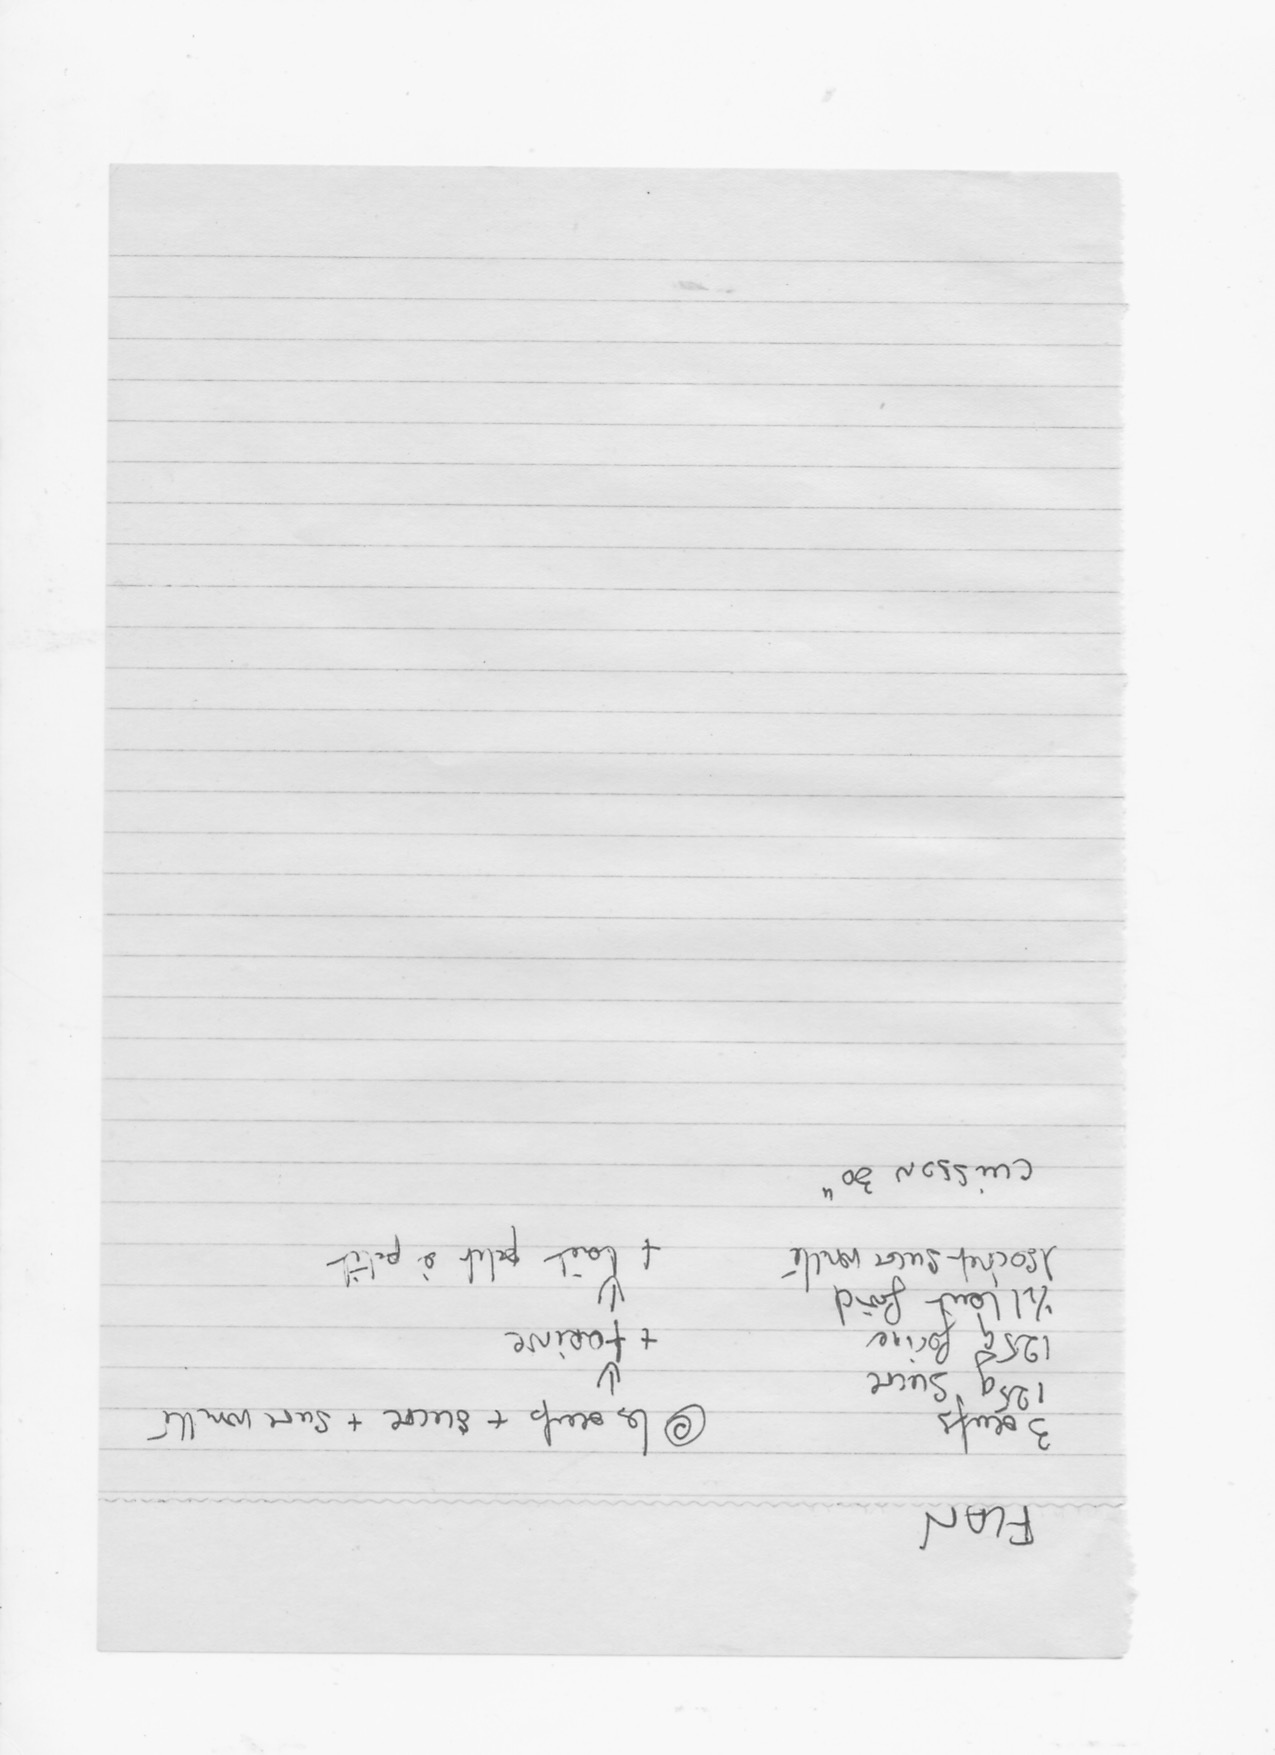 FLAN
3 oeufs
125g sucre
125g farine
1/2 l lait froid
1 sachet sucre vanillé
cuisson 30"
les oeufs + sucre + sucre vanillé
+ farine
+ lait petit à petit